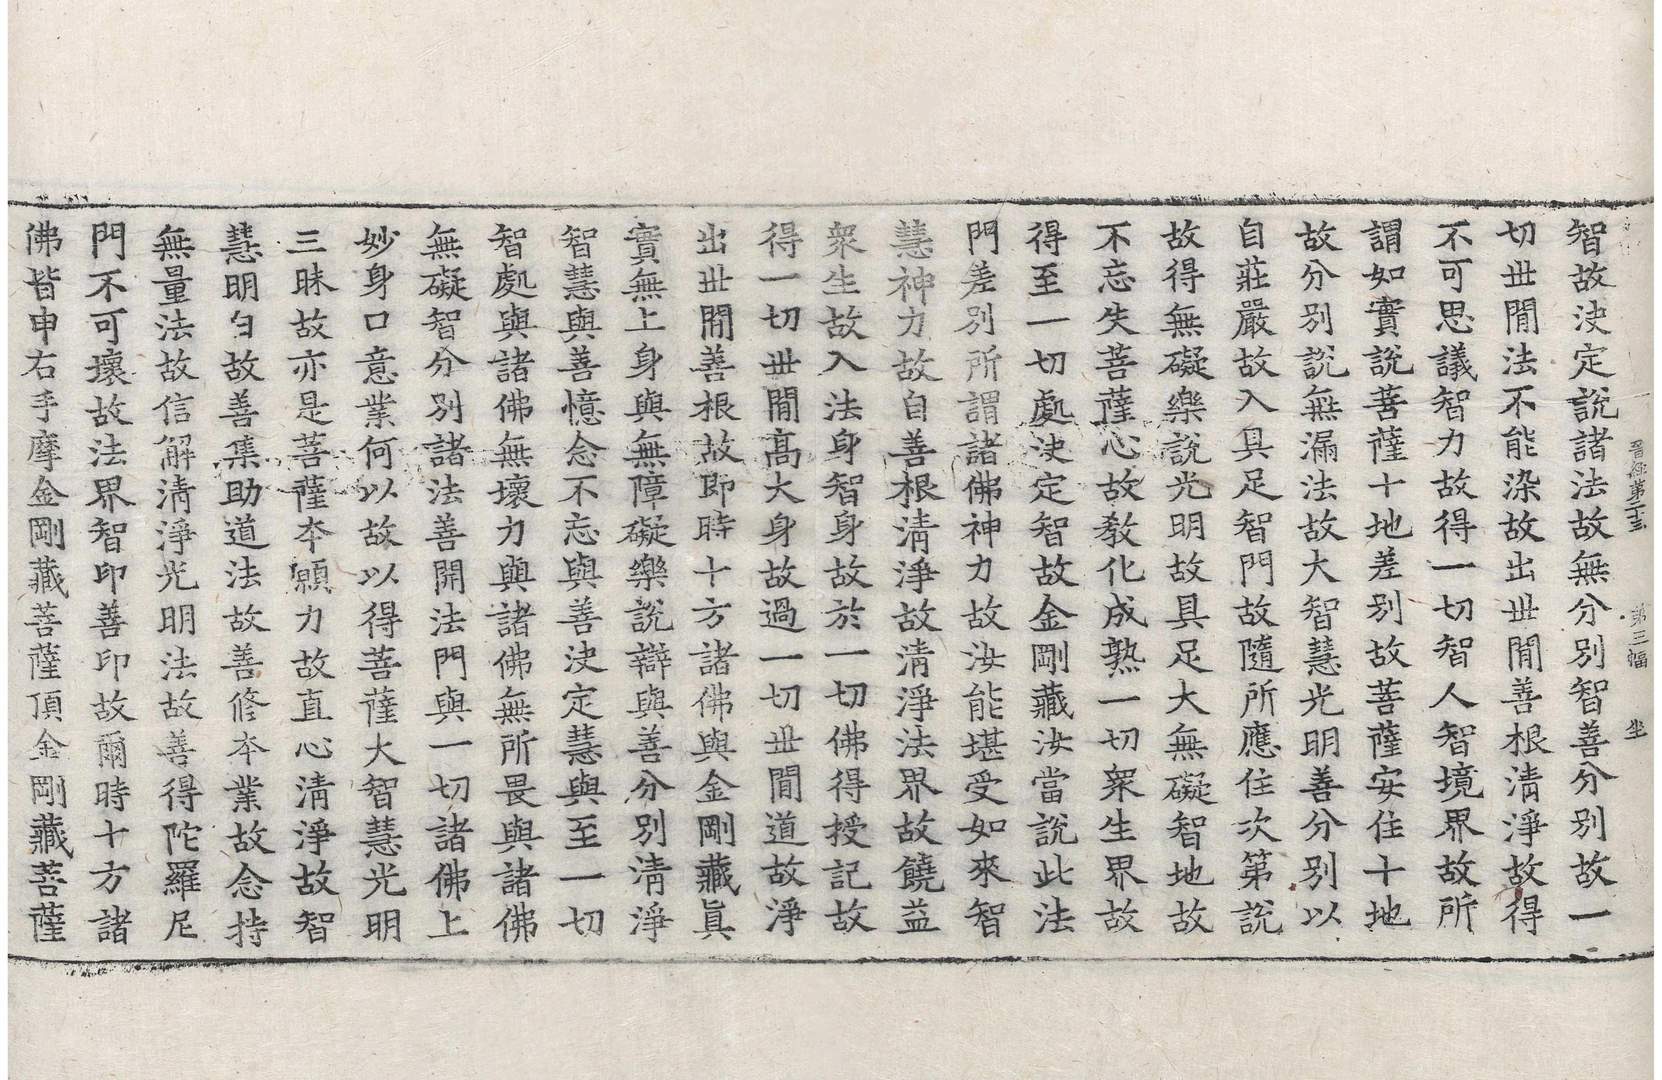 晉經第二十三 第三幅 坐
智故決定說諸法故無分別智善分別故一
切世閒法不能染故出世閒善根淸淨故得
不可思議智力故得一切智人智境界故所
謂如實說菩薩十地差別故菩薩安住十地
故分別說無漏法故大智慧光明善分別以
自莊嚴故入具足智門故隨所應住次第說
故得無礙樂說光明故具足大無礙智地故
不忘失菩薩心故敎化成熟一切衆生界故
得至一切處決定智故金剛藏汝當說此法
門差別所謂諸佛神力故汝能堪受如來智
慧神力故自善根淸淨故淸淨法界故饒益
衆生故入法身智身故於一切佛得授記故
得一切世閒高大身故過一切世閒道故淨
出世閒善根故即時十方諸佛與金剛藏眞
實無上身與無障礙樂說辯與善分別淸淨
智慧與善憶念不忘與善決定慧與至一切
智處與諸佛無壞力與諸佛無所畏與諸佛
無礙智分別諸法善開法門與一切諸佛上
妙身口意業何以故以得菩薩大智慧光明
三昧故亦是菩薩本願力故直心淸淨故智
慧明白故善集助道法故善修本業故念持
無量法故信解淸淨光明法故善得陀羅尼
門不可壞故法界智印善印故爾時十方諸
佛皆申右手摩金剛藏菩薩頂金剛藏菩薩